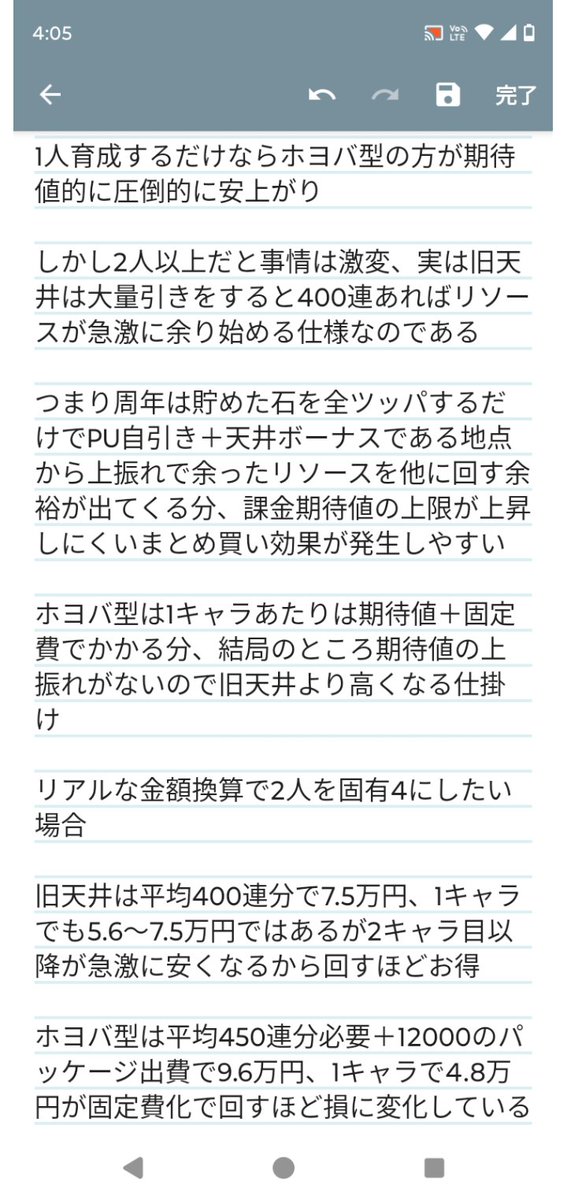 4:05
Vo
LTE
完了
1人育成するだけならホヨバ型の方が期待
値的に圧倒的に安上がり
しかし2人以上だと事情は激変、実は旧天
井は大量引きをすると400連あればリソー
スが急激に余り始める仕様なのである
つまり周年は貯めた石を全ツッパするだ
けでPU自引き＋天井ボーナスである地点
から上振れで余ったリソースを他に回す余
裕が出てくる分、課金期待値の上限が上昇
しにくいまとめ買い効果が発生しやすい
ホヨバ型は1キャラあたりは期待値＋固定
費でかかる分、結局のところ期待値の上
振れがないので旧天井より高くなる仕掛
け
リアルな金額換算で2人を固有4にしたい
場合
旧天井は平均400連分で7.5万円、1キャラ
でも5.6〜7.5万円ではあるが2キャラ目以
降が急激に安くなるから回すほどお得
ホヨバ型は平均450連分必要＋12000のパ
ッケージ出費で9.6万円、1キャラで4.8万
円が固定費化で回すほど損に変化している